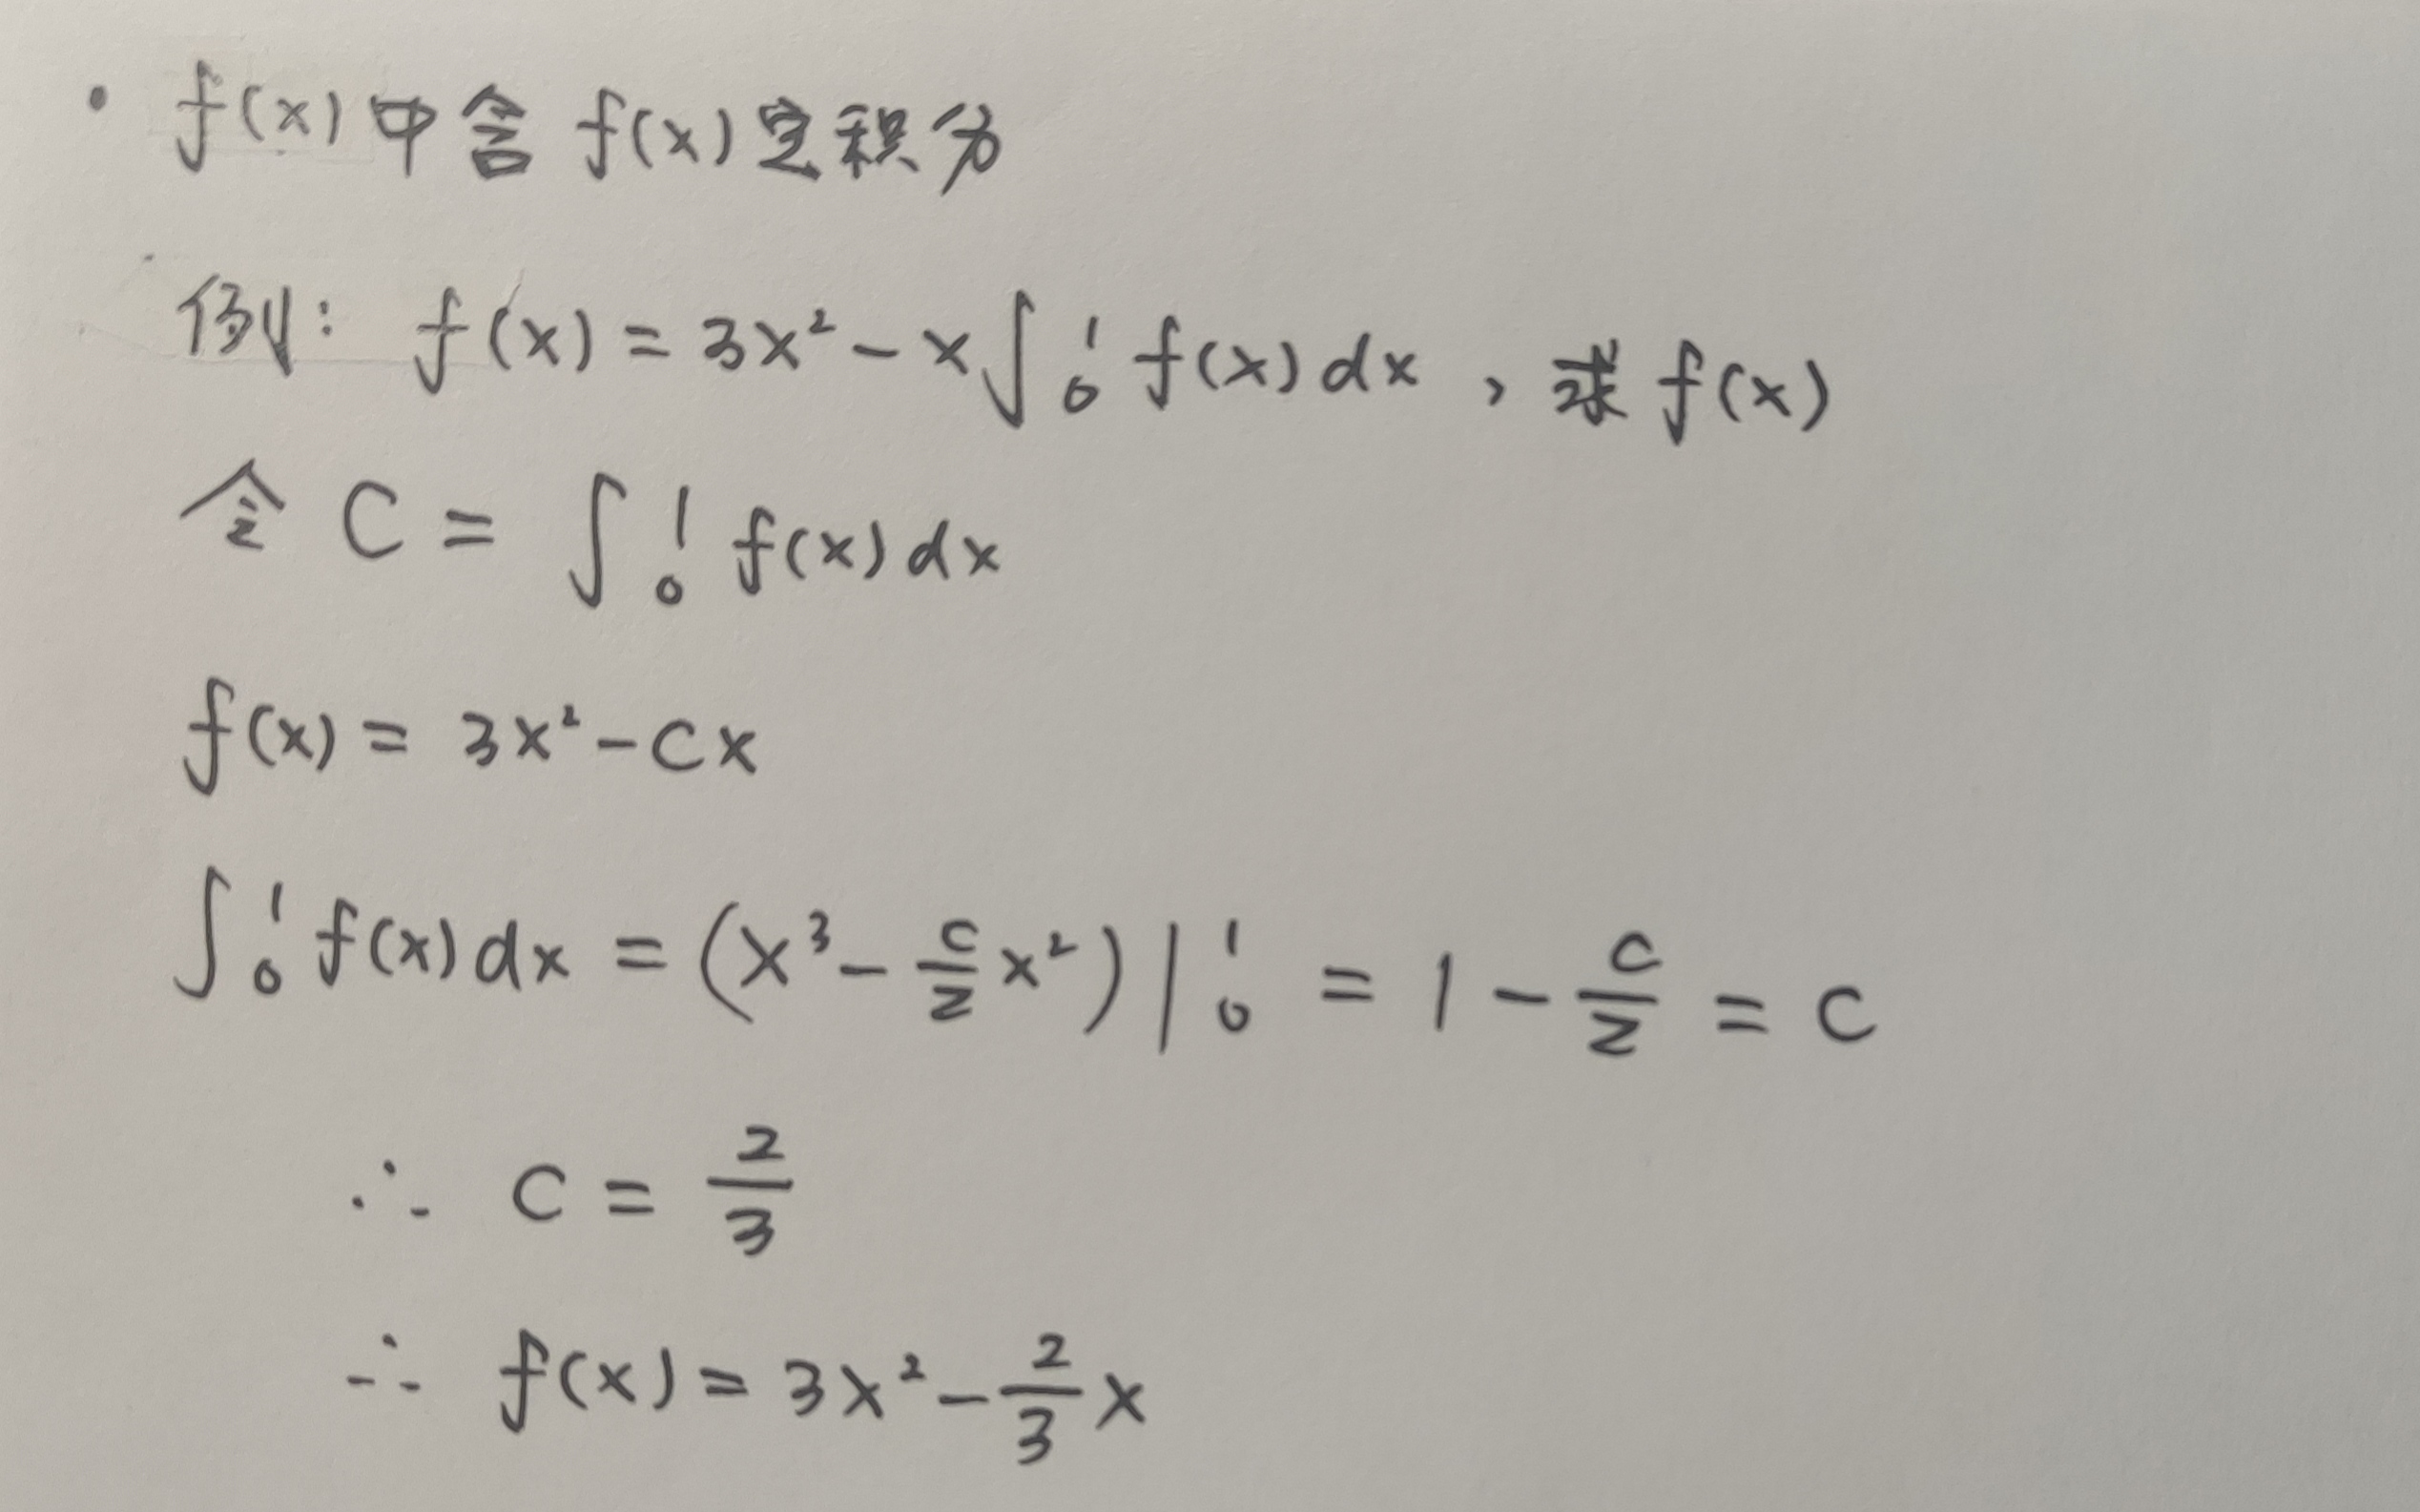 · f(x)中含 f(x)定积分
例: f(x) = 3x² - x∫₀¹ f(x)dx , 求 f(x)
令 C = ∫₀¹ f(x)dx
f(x) = 3x² - Cx
∫₀¹ f(x)dx = (x³ - C/2 x²)|₀¹ = 1 - C/2 = C
∴ C = 2/3
∴ f(x) = 3x² - 2/3 x